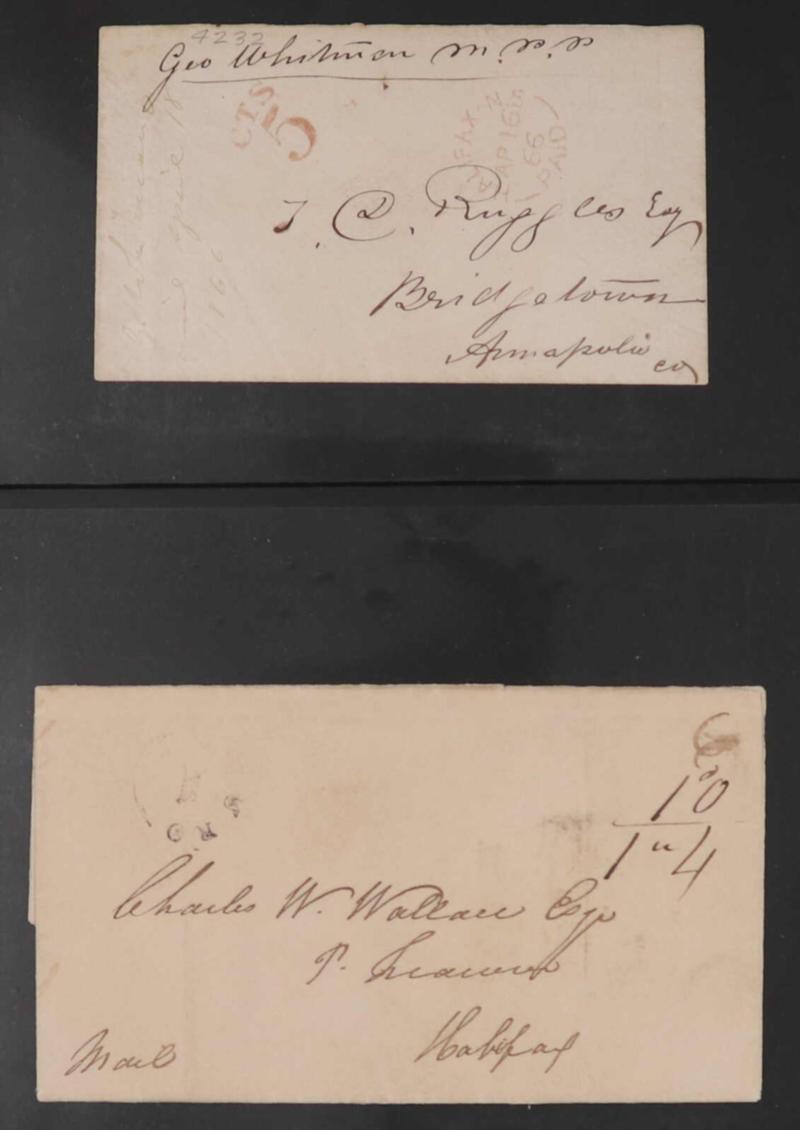 4232
Geo Whitman M.P.P
CTS 5
ALIFAX. N
AP 16
66
PAID
T. D. Ruggles Esq
Bridgetown
Annapolis
co
1866
6
10
1"4
Charles W. Wallace Esqr
P. Treasurer
Halifax
Mail